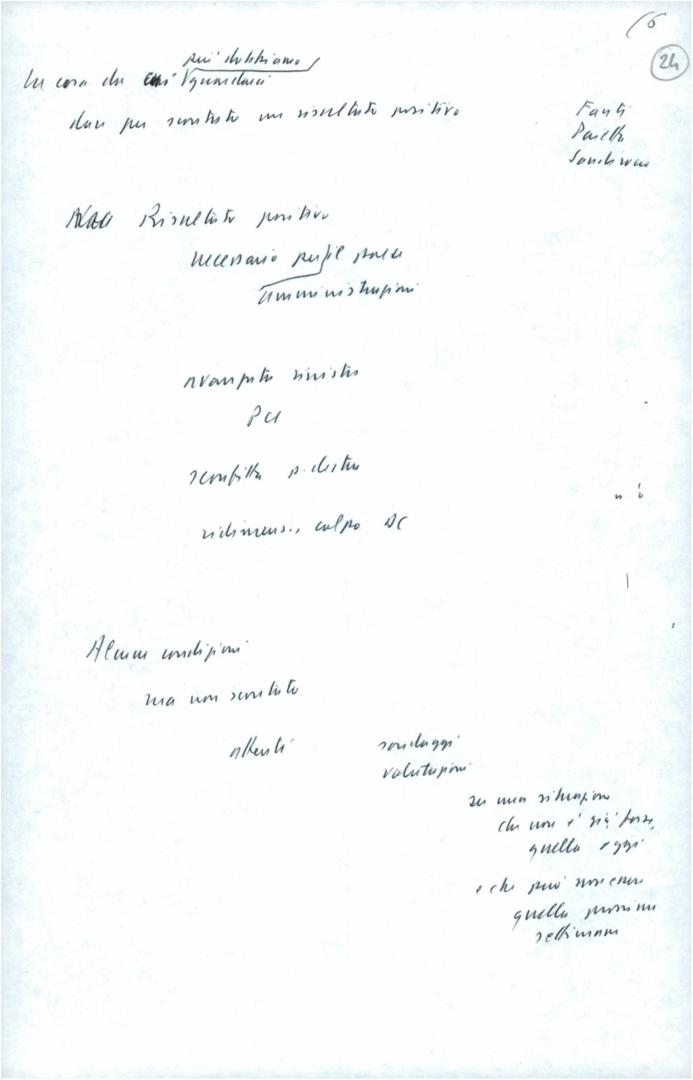 6
24
più dobbiamo
La cosa da cui guardarci
dare per scontato un risultato positivo
Fanti
Risultato positivo
necessario per il paese
amministrazioni
avanzata sinistra
PCI
sconfitta destra
ridimens.. colpo DC
Alcune condizioni
ma non scontato
attenti
sondaggi
valutazioni
su una situazione
che non è già forse
quella oggi
e che può non essere
quella prossima
settimana